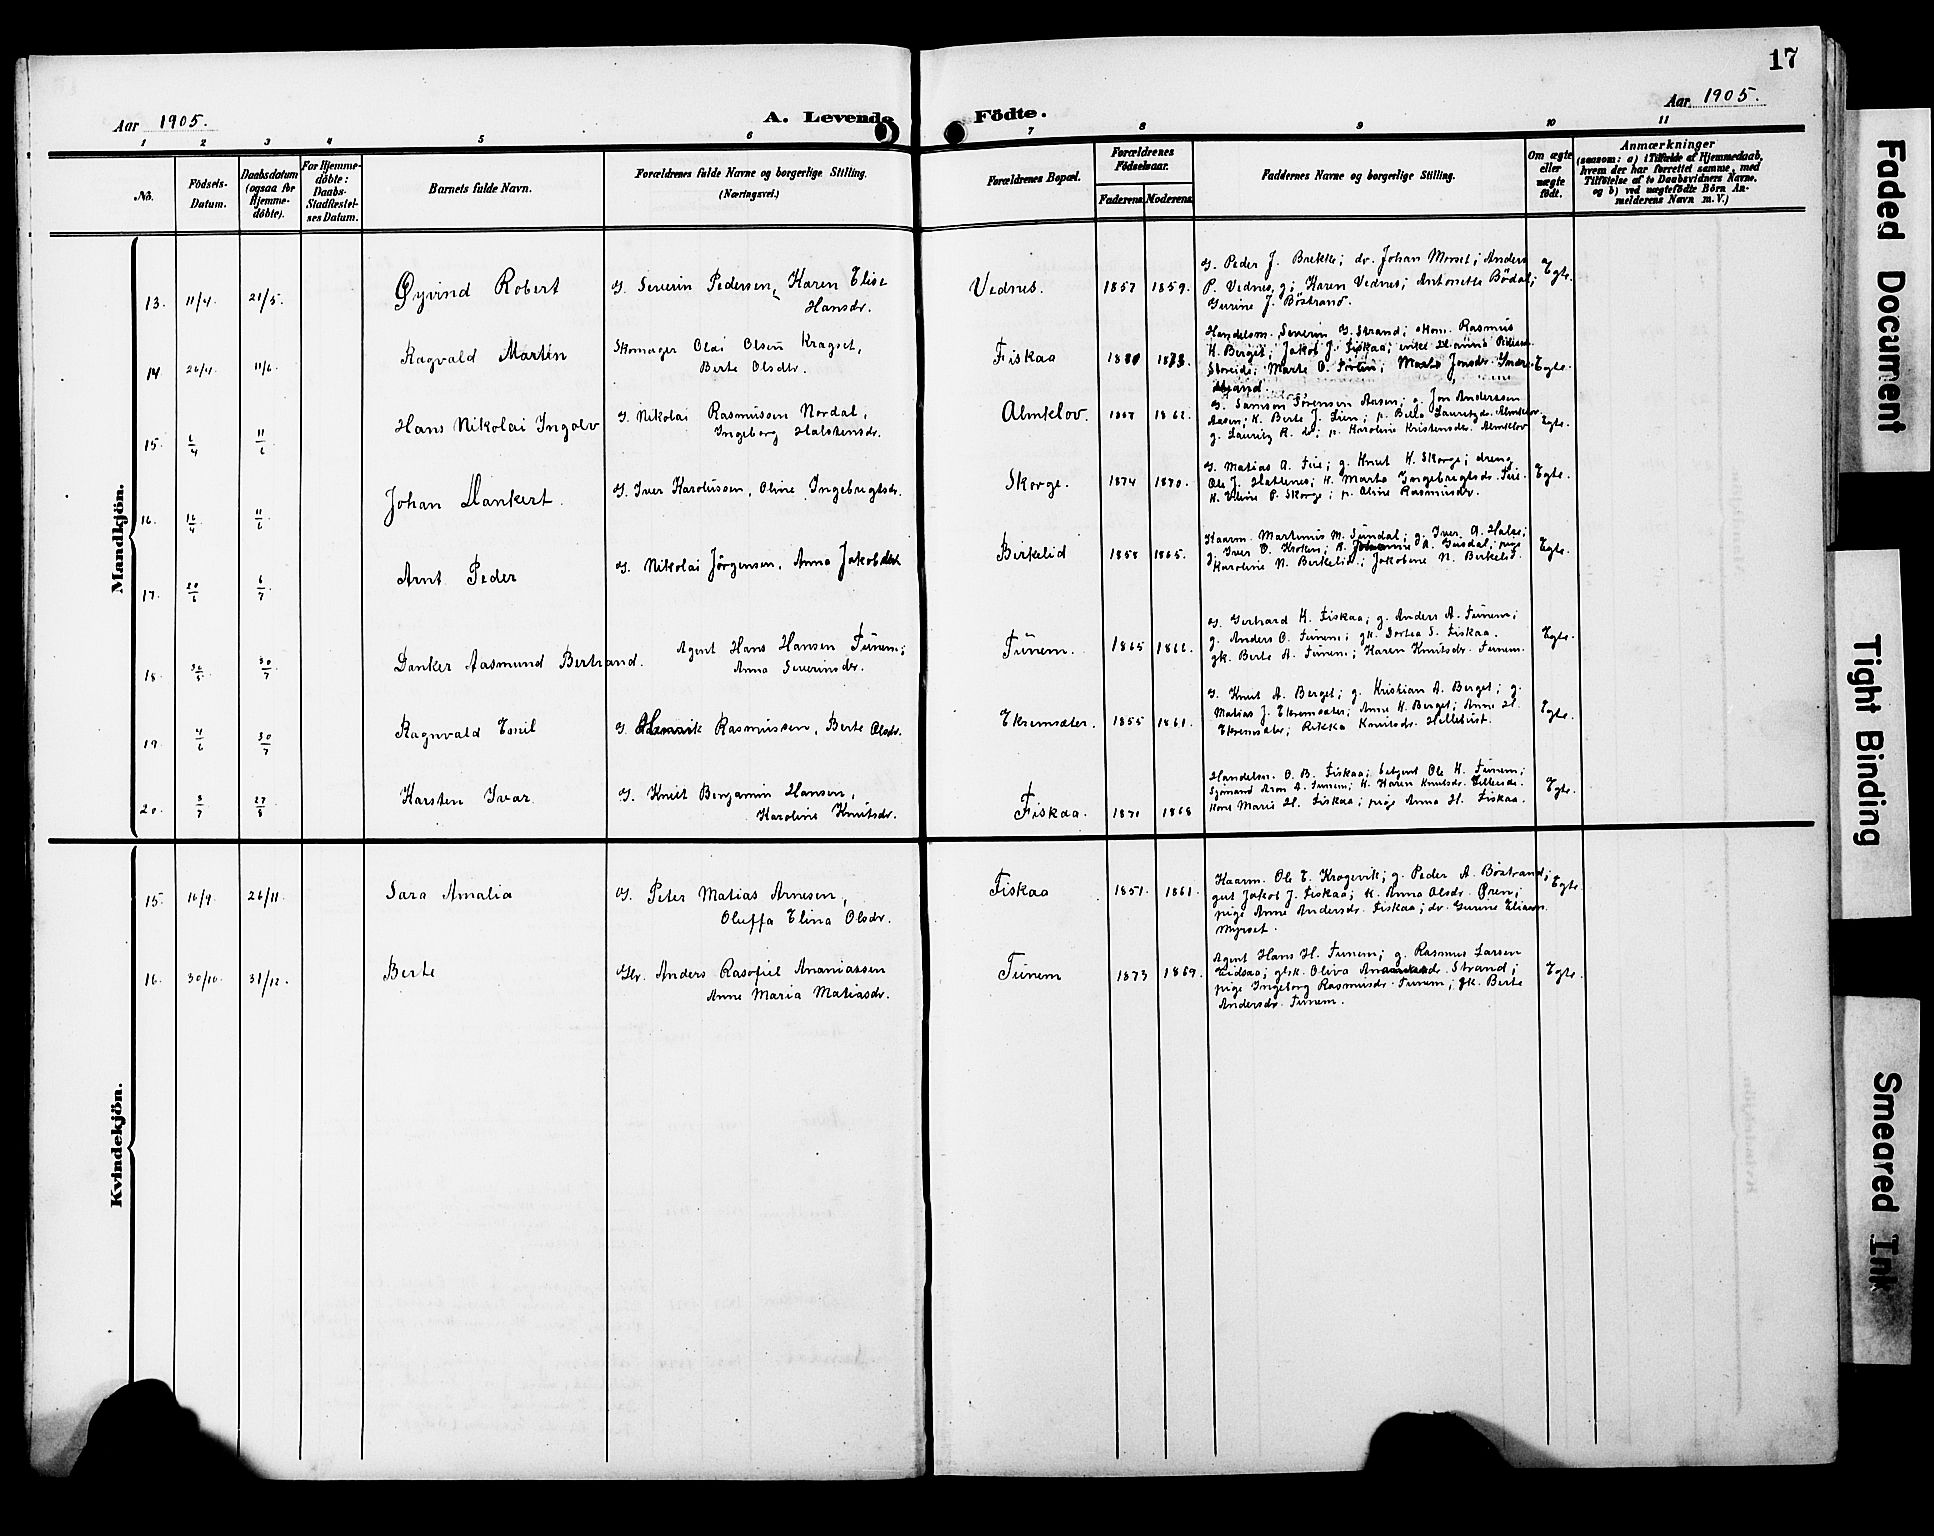 17
Aar 1905.
A. Levende Födte.
Aar 1905.
1 2 3 4 5 6 7 8 9 10 11
No.
Födsels-Datum.
Daabsdatum (ogsaa for Hjemmedöbte).
For Hjemmedöbte: Daabs-Stadfæstelses Datum.
Barnets fulde Navn.
Forældrenes fulde Navne og borgerlige Stilling.
(Næringsvei.)
Forældrenes Bopæl.
Forældrenes Födselsaar.
Faderens Moderens
Faddernes Navne og borgerlige Stilling.
Om ægte eller uægte født.
Anmærkninger
(saasom: a) i Tilfælde af Hjemmedaab, hvem der har forrettet samme, med Tilföielse af to Daabsvidners Navne. og b) ved uægtefödte Börn Anmelderens Navn m. V.)
Mandkjön.
13. 11/4 21/5. Øyvind Robert
G. Severin Pedersen, Karen Elise
Hansdr.
Vednes. 1857 1859.
G. Peder J. Brekke; dr. Johan Morset; Anders
P. Vednes, g; Karen Vednes; Antonette Bödal;
Gurine J. Böstrand.
Egte.
14 26/4. 11/6. Ragvald Martin
Skomager Olai Olsen Kragset,
Berte Olsdtr.
Fiskaa 1880 1873.
Handelsm. Severin G. Strand; skom. Rasmus
K. Berget; Jakob J. Fiskaa; enke
Marte O.
Egte.
15. 6/4 11/6 Hans Nikolai Ingolv
G. Nikolai Rasmussen Nordal,
Ingeborg Halstensdr.
Almklov. 1867 1862.
G. Samson Sörensen Aasen; g. Jon Anderssen
Aasen; K. Berte J. Lien; p. Berte Lauritzdr. Almklov.
g. Lauritz R. do; p. Karoline Kristensdr. Almklov
Egte.
16. 16/4 11/6 Johan Dankert.
G. Iver Karolussen, Oline Ingebrigtsdr.
Skorge. 1874 1870.
G. Matias A. Eie; g. Knut K. Skorge; dreng
Ole J. Hatlenes; K. Marte Ingebrigtsdr. Eie.
K. P. Skorge; p. Oline Rasmusdr.
Egte.
17. 20/6 6/7 Arnt Peder
G. Nikolai Jörgensen, Anna Jakobsdtr
Birkelid 1858 1865.
Kaarm. Martinus M. Sundal; g. Iver A. Halse;
g. Iver O. Kroken; K. Johanne A. Gusdal; pige
Karoline N. Birkelid; Jakobine N. Birkelid.
Egte.
18. 30/7 Danker Aasmund Bertrand.
Agent Hans Hansen Tunem;
Anna Severinsdr.
Tunem. 1865 1866.
G. Gerhard K. Fiskaa; g. Anders A. Tunem;
g. Anders O. Tunem; gk. Dortea S. Fiskaa.
gk. Berte A. Tunem; Karen Knutsdr. Tunem.
Egte.
19. 4/6 30/7 Ragnvald Emil
G. Rasmussen, Berte Olsdr.
Ekremsæter. 1855 1861.
G. Knut A. Berget; g. Kristian A. Berget; g.
Matias J. Ekremsæter; Anne K. Berget; Anne H.
Ekremsæter; Rikka Knutsdr. Hellebust.
Egte.
20. 8/7 27/8 Karsten Ivar
G. Knut Benjamin Hansen,
Karoline Knutsdr.
Fiskaa. 1871 1868
Handelsm. O. B. Fiskaa; betjent Ole H. Tunem;
Sjömand Aron A. Tunem; K. Karen Knutsdr.
Kone Marie H. Fiskaa; pige Anna H. Fiskaa.
Egte.
Kvindekjön.
15. 16/9. 26/11. Sara Amalia
G. Peter Matias Arnesen,
Oluffa Elina Olsdr.
Fiskaa 1851. 1861.
Kaarm. Ole E. Kragevik; g. Peder A. Böstrand;
gut Jakob J. Fiskaa; K. Anna Olsdr. Øren;
pige Anne Andersdr. Fiskaa; dv. Gurine Eliasen
Myrset.
Egte
16. 30/10. 31/12. Berte
Gbr. Anders Rasofiel Ananiassen
Anne Maria Matiasdr.
Tunem 1873 1869.
Agent Hans H. Tunem; g. Rasmus Larsen
Eidsaa; gbsk. Oliva Strand;
pige Ingeborg Rasmusdr. Tunem; gk. Berte
Andersdr. Tunem.
Egte.
Faded Document
Tight Binding
Smeared Ink